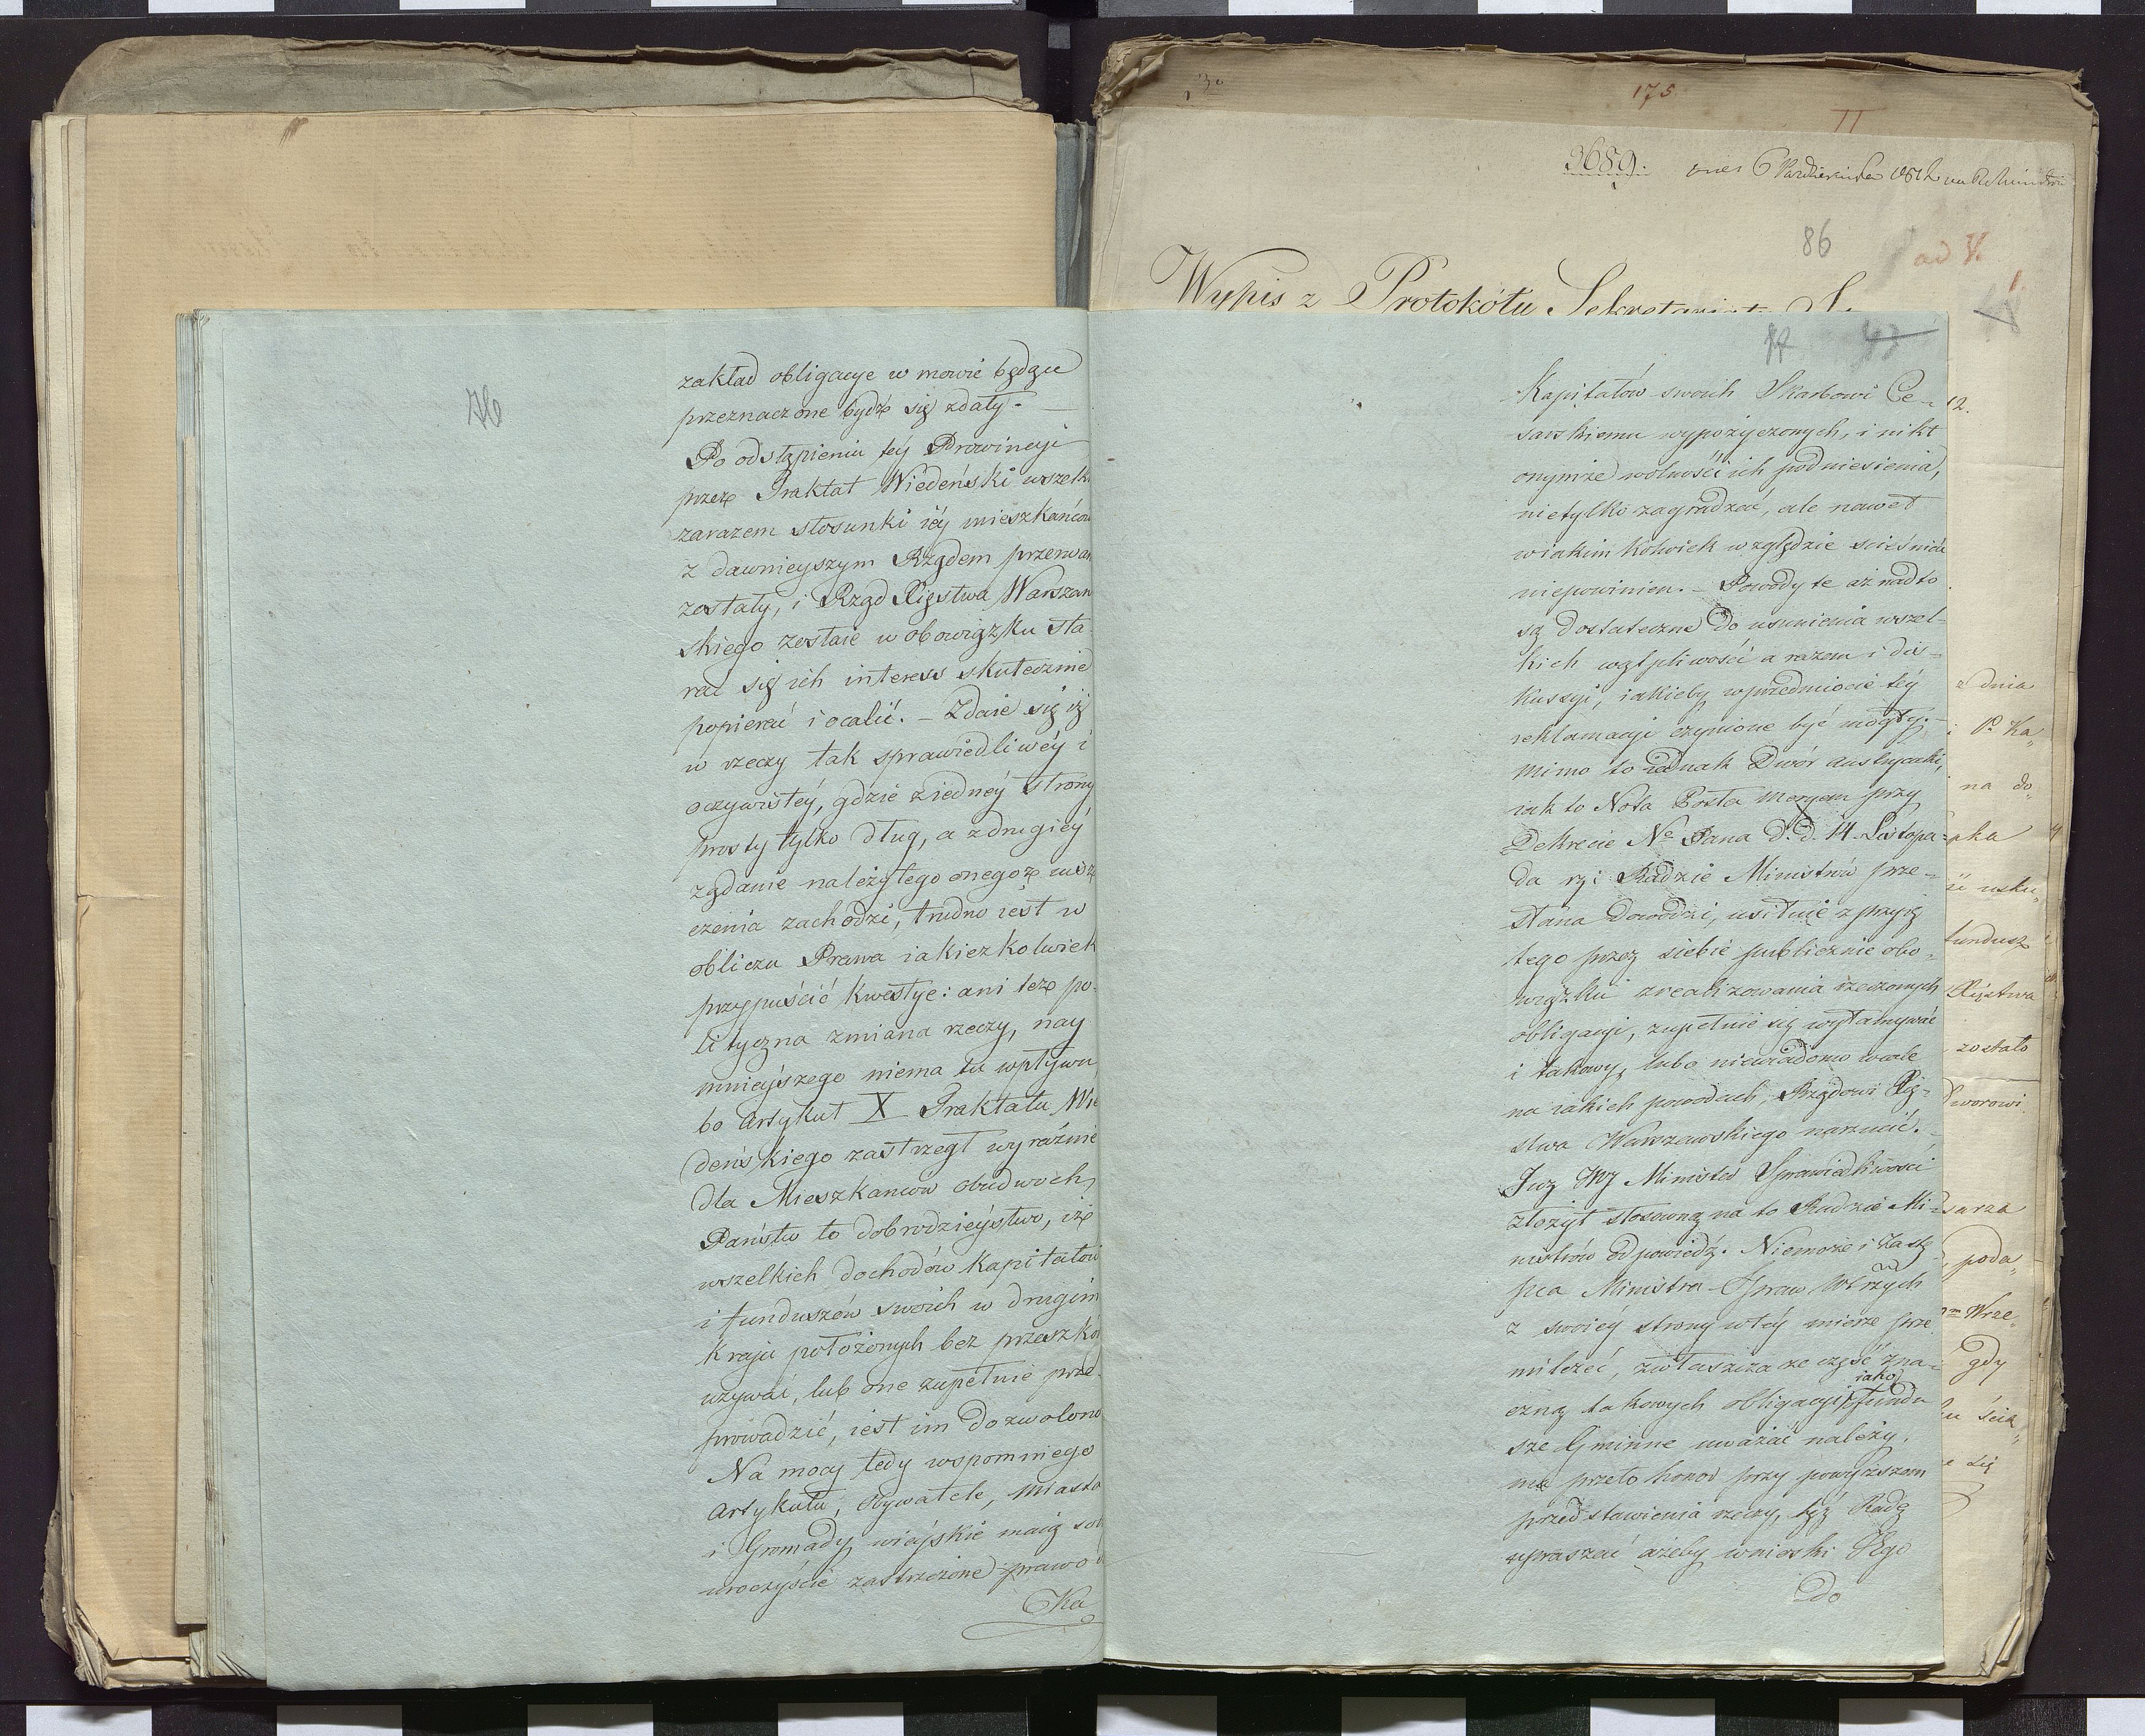 zakład obligacye w mowie będące
przeznaczone bydź się zdały. —
Po odstąpieniu téy Prowincyi
przez Traktat Wiedeński wszelk
zarazem stosunki iéy mieszkańców
z dawnieyszym Rządem przerwan
zostały, i Rząd Xięstwa Warszaw
skiego zostaie w obowiązku sta
rać się ich interess skutecznie
popierać i ocalić. — Zdaie się iż
w rzeczy tak sprawiedliwéy i
oczywistéy, gdzie z iednéy strony
prosty tylko dług, a z drugiéy
żądanie należytego onegoż uisz
czenia zachodzi, trudno iest w
obliczu Prawa iakiezkolwiek
przypuścić kwestye: ani też po-
lityczna zmiana rzeczy, nay
mnieyszego niema tu wpływu
bo artykuł X Traktatu Wie
deńskiego zastrzegł wyraźnie
dla Mieszkancow obudwóch
Państw to dobrodzieystwo, iż
wszelkich dochodów kapitałów
i funduszów swoich w drugim
Kraju położonych bez przeszkó
używać, lub one zupełnie prze-
prowadzić, iest im dozwolono
Na mocy tedy wspomniego
artykułu, obywatele, miasta
i Gromady wieyskie maią sob
uroczyście zastrzeżone prawo
Ka
175
II
3689.
86
ad V.
Wypis z Protokółu Sekretariatu
Kapitałów swoich Skarbowi Ce-
sarskiemu wypożyczonych, i nikt
onymże wolności ich podniesienia,
nietylko zagradzać, ale nawet
wiakim kolwiek względzie scieśniać
niepowinien. — Powody te aż nadto
są dostateczne do usunienia wszel-
kich wątpliwość a razem i dis-
kussyi, iakieby wprzedmiocie téy
reklamacyi czynione być mogły. —
Mimo to iednak Dwór austryacki,
iak to Nota Posła przy
Dekrecie Nº Pana d. d. 14. Listopa-
da r. z. Radzie Ministrów prze-
słana dowodzi, usiłuie z przyię
tego przez siebie publicznie obo-
wiązku zrealizowania rzeczonych
obligacyi, zupełnie się wyłamywać
i takowy, lubo niewiadomo wcale
na iakich powodach, Rządowi Xię-
stwa Warszawskiego narzucić. —
Już JW Minister Sprawiedliwości
złożył stosowną na to Radzie Mi-
nistrów odpowiedź. Niemoże i Zastę
pca Ministra Spraw Wnych
z swoiéy strony w téy mierze prze
milczeć, zwłaszcza że część zna-
czną takowych obligacyi iako fundu
sze Gminne uważać należy,
ma przeto honor przy powyższem
przedstawieniu rzeczy, tęż Radę
upraszać ażeby wnioski Jego
do
12.
z dnia
na do
pka
usku
fundusz
Xięstwa
zostało
Dworowi
sarza
poda
Wrze
gdy
się